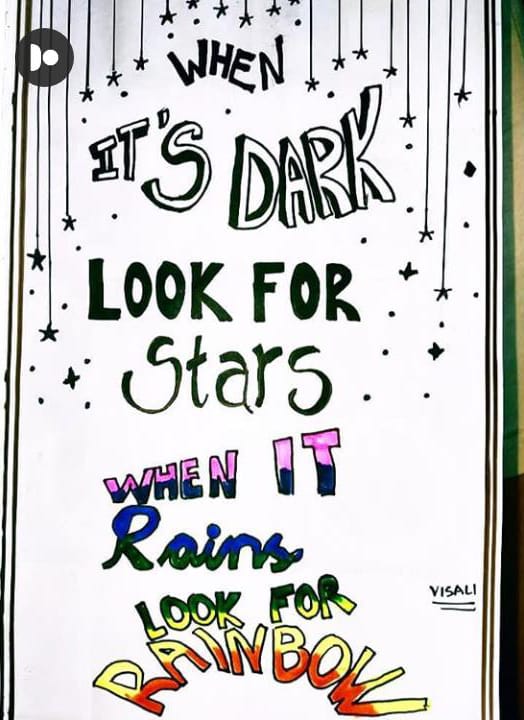 WHEN
IT'S DARK
LOOK FOR
Stars
WHEN IT
Rains
LOOK FOR
RAINBOW
VISALI